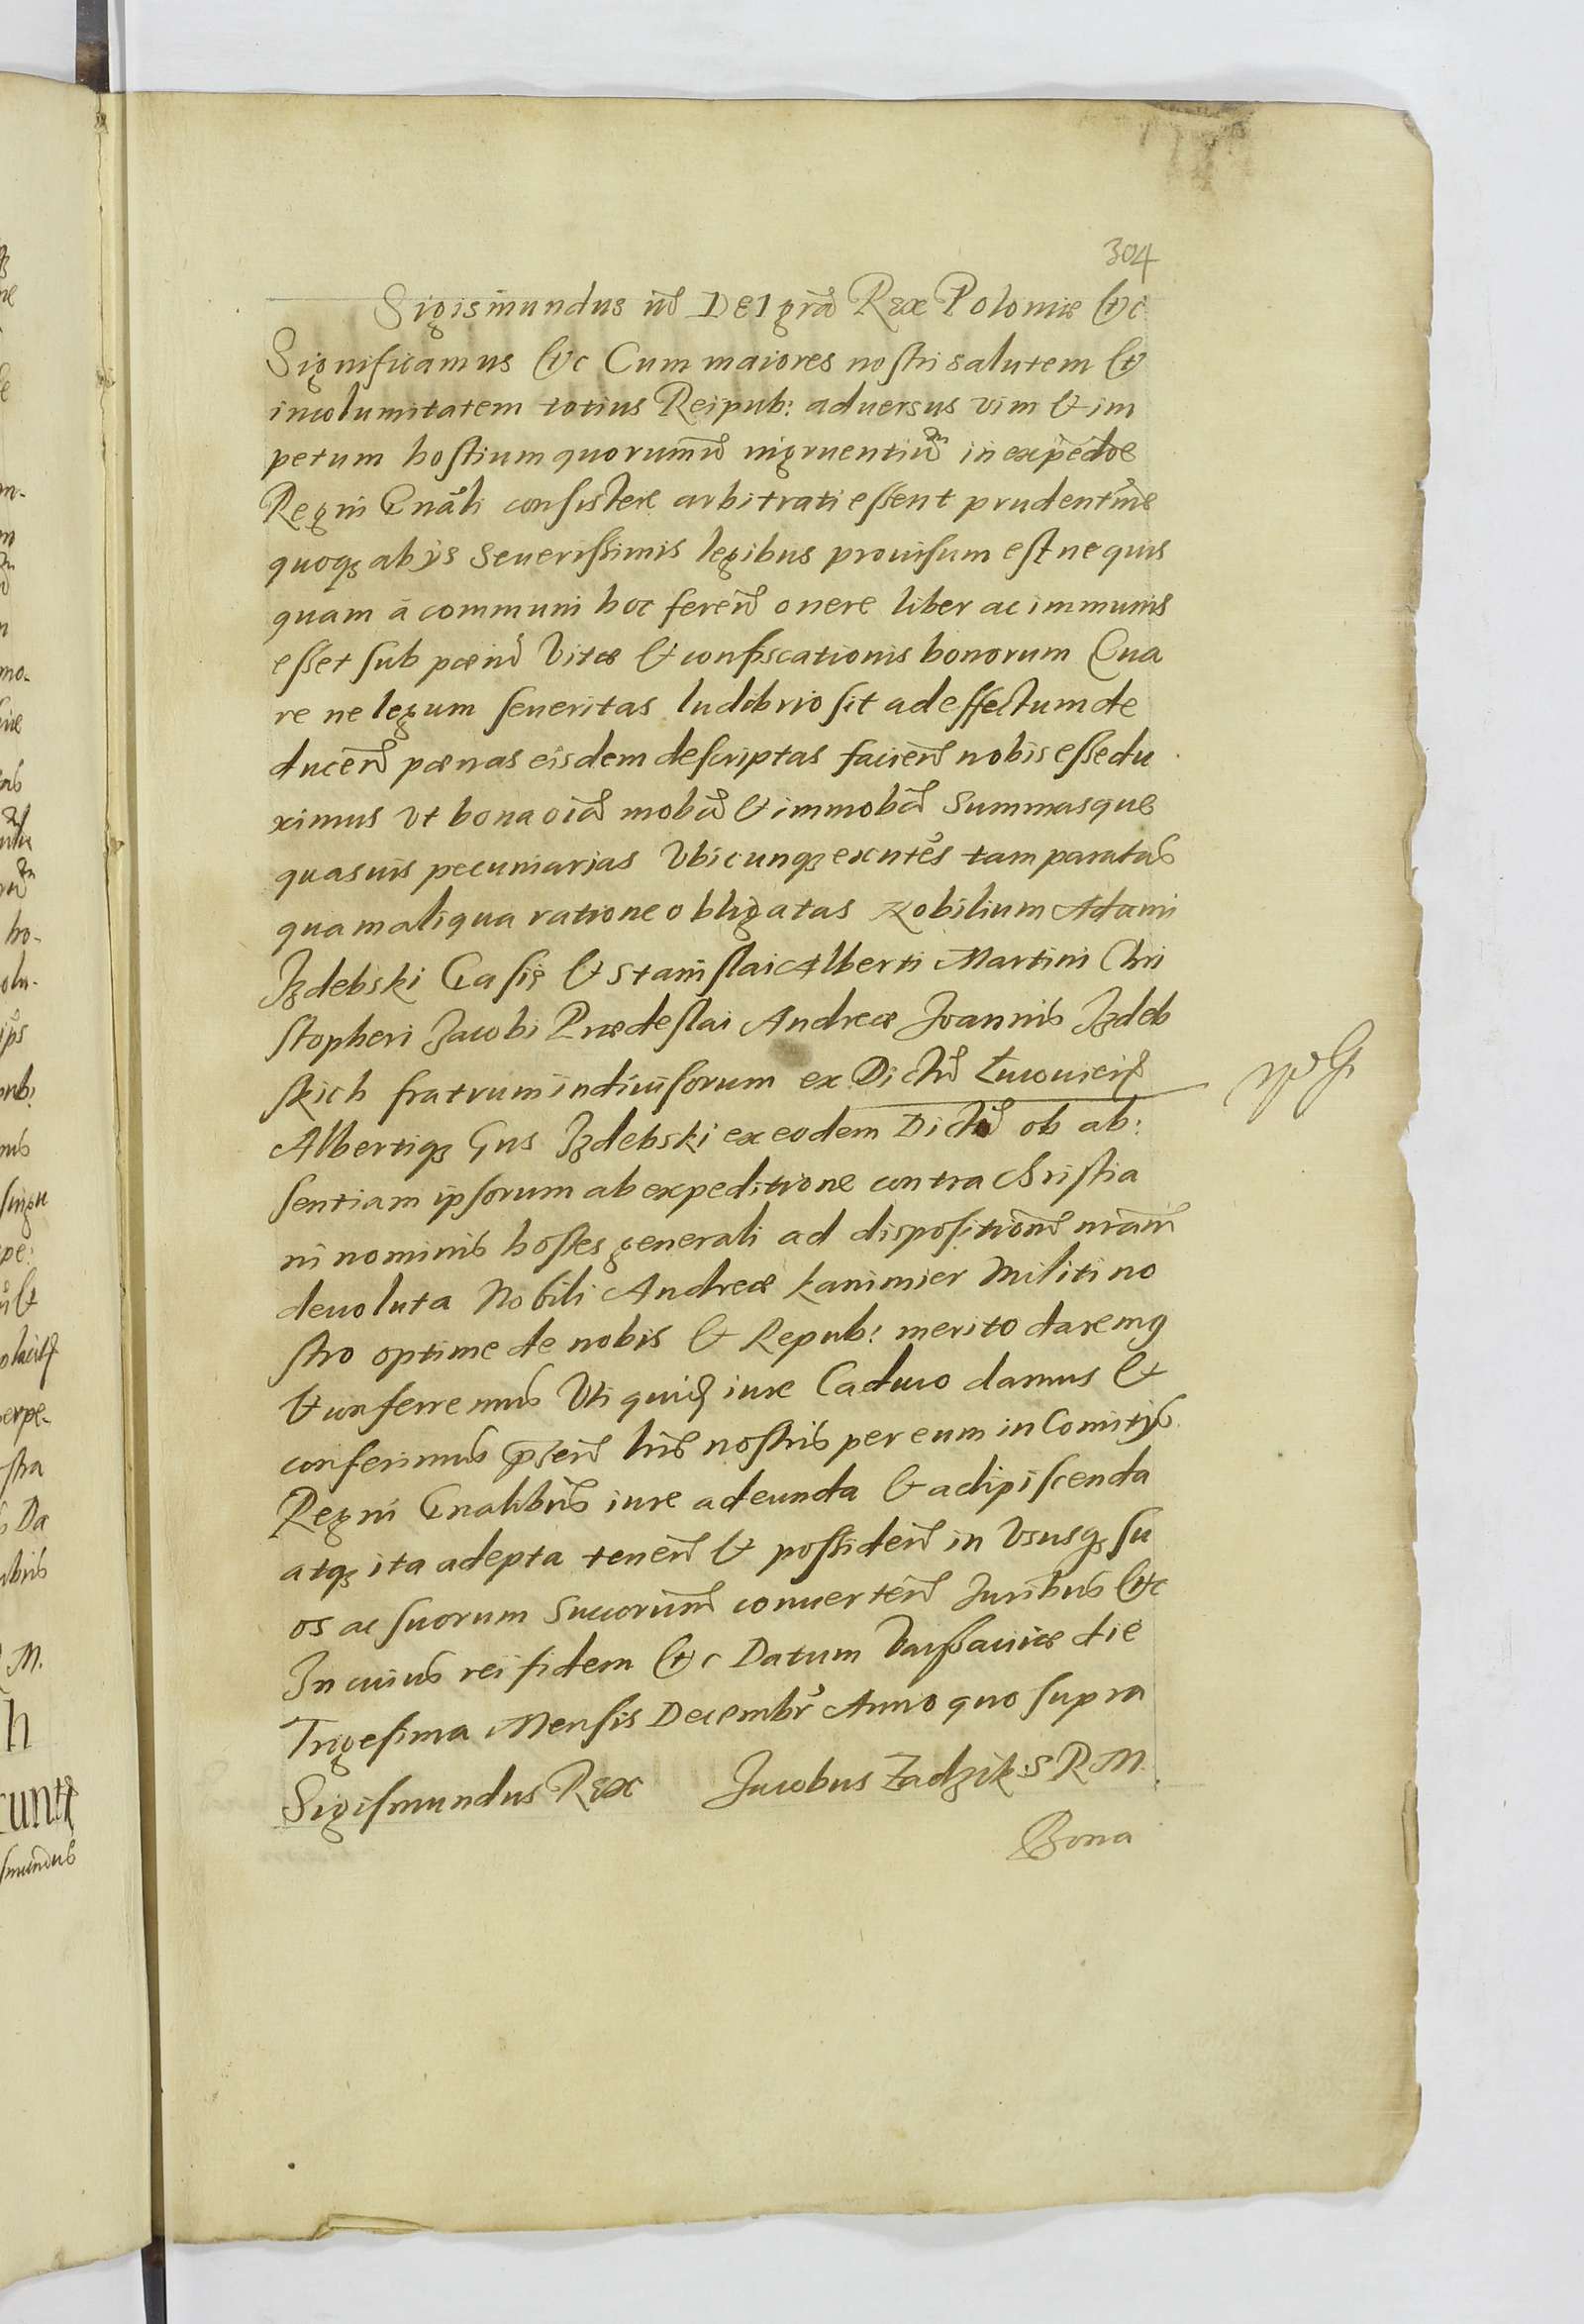 304
Sigismundus iii Dei gra Rex Poloniæ &c
Significamus &c Cum maiores nostri salutem &
incolumitatem totius Reipub: aduersus vim & im
petum hostium quorumuis ingruentiũ in expedoe
Regni Gnali consistere arbitrati essent prudentme
quoqz ab ijs Seuerissimis legibus prouisum est ne quis
quam à communi hoc feren onere liber ac immunis
esset sub pœna Vitæ & confiscationis bonorum Qua
re ne legum seueritas ludibrio sit ad effectum de
ducen pœnas eisdem descriptas facien nobis esse du
ximus Vt bona oia mobia & immobia Summasque
quasuis pecuniarias Vbicunqz exntes tam paratas
quam aliqua ratione obligatas Nobilium Adami
Jzdebski & Stanislai Alberti Martini Chri
stopheri Jacobi Prædeslai Andreæ Joannis Jzdeb
skich fratrum indiuisorum ex Dictu Łucouien
Albertiqz Jzdebski ex eodem Dictu ob ab:
sentiam ipsorum ab expeditione contra Christia
ni nominis hostes generali ad dispositione nram
deuoluta Nobili Andreæ Kanimier Militi no
stro optime de nobis & Repub: merito daremq
& conferremus Vti quidem iure Caduco damus &
conferimus pñtibus lris nostris per eum in Comitijs
Regni Gnalibus iure adeunda & adipiscenda
atqz ita adepta tenen & possiden in Vsusqz su
os ac suorum Succorum conuerten Juribus &c
Jn cuius rei fidem &c Datum Varssauiæ die
Trigesima Mensis Decembr Anno quo supra
Sigismundus Rex Jacobus Zadzik: S R M.
Bona